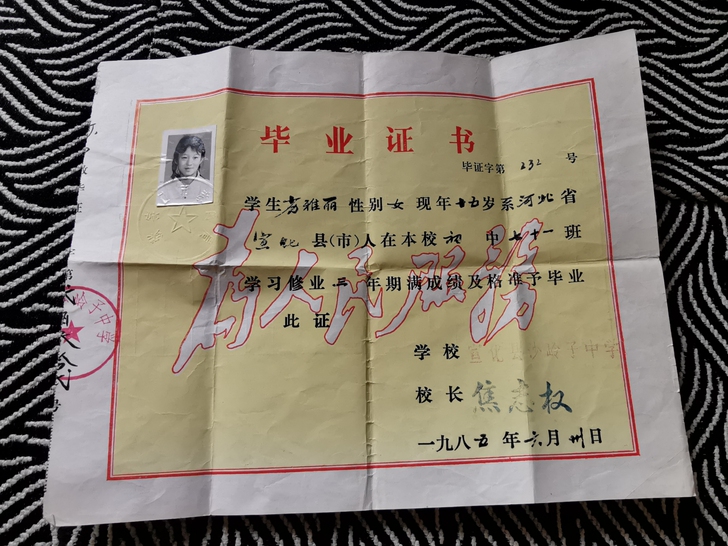 毕业证书
毕证字第 232 号
学生高雅丽 性别女 现年十五岁系河北省
宣化县(市)人在本校初中七十一班
学习修业三年期满成绩及格准予毕业
此证
为人民服务
学校
校长 焦志权
一九八五年六月卅日
子中学